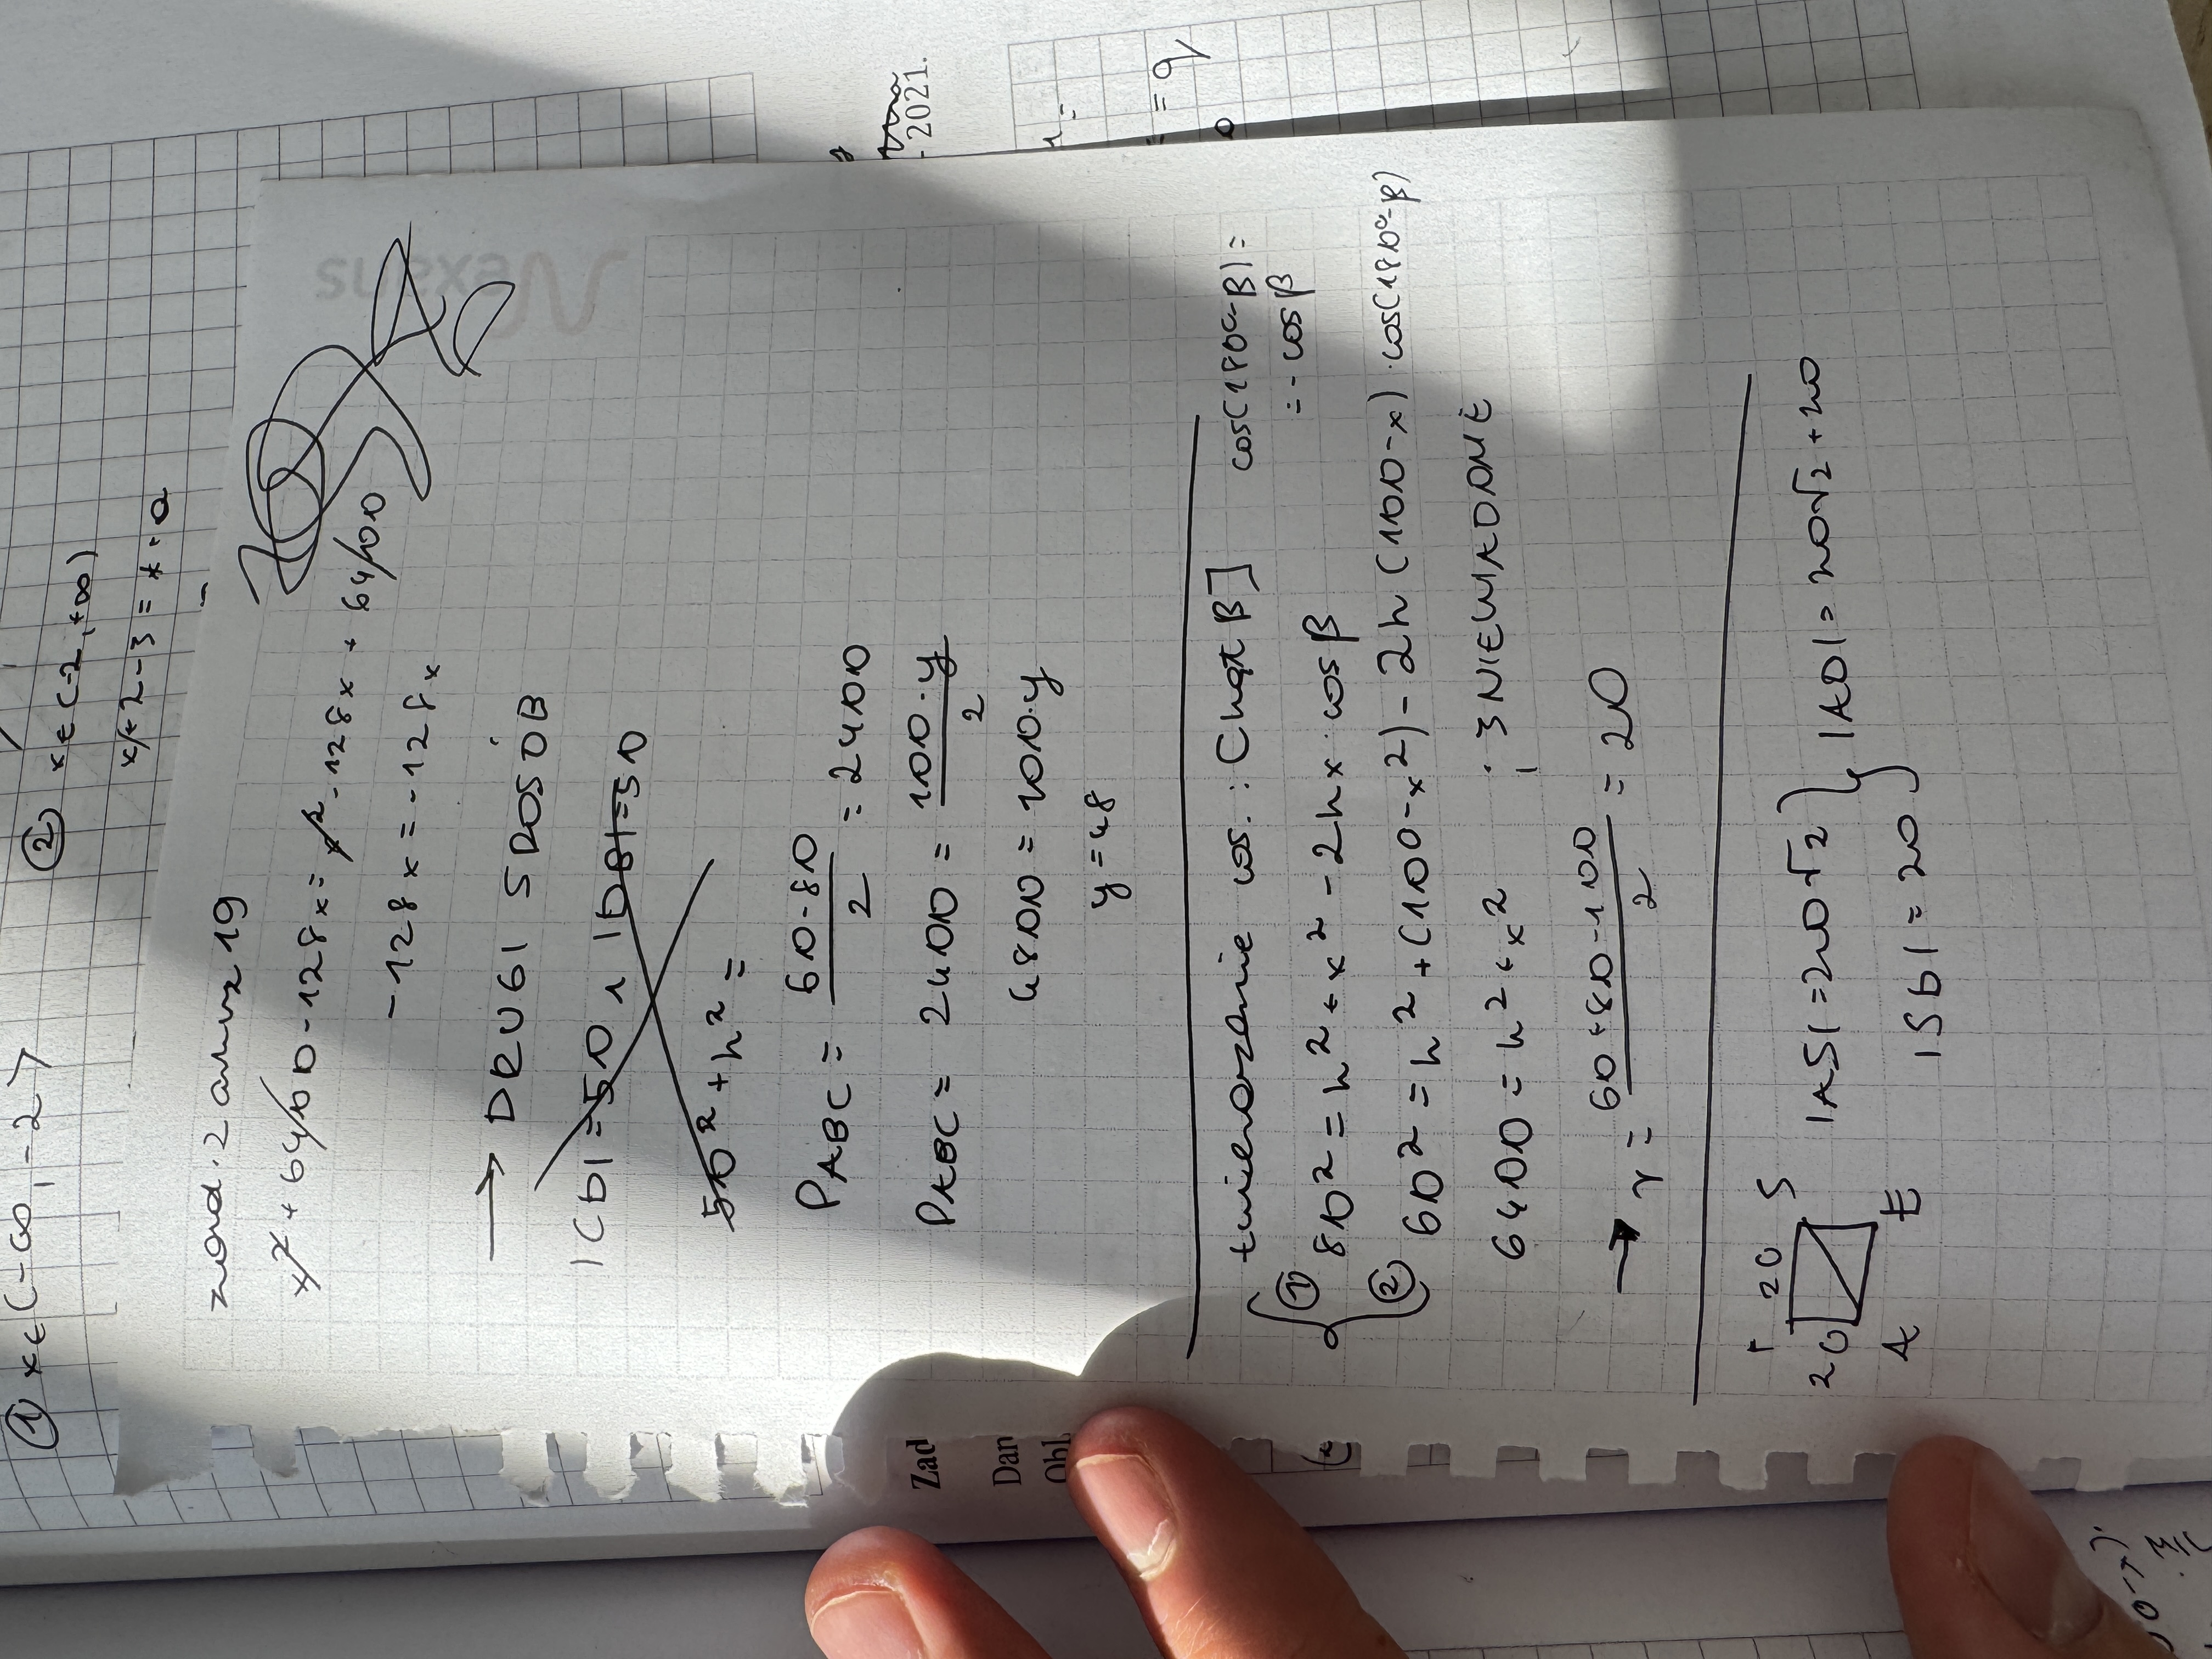 ① x∈(-∞,-2> ② x∈(-2,+∞)
x+2-3=
zad. 2 arkusz 19
x²+6400-128x= x²-128x+6400
-128x=-128x
→ DRUGI SPOSÓB
|CD|=50 |DB|=50
50²+h²=
PABC= 60·80/2 =2400
PABC= 2400= 100·y/2
4800=100·y
y=48
twierdzenie cos.: [kąt β] cos(180°-β)=
=-cosβ
① 80²=h²+x²-2hx·cosβ
② 60²=h²+(100-x²)-2h(100-x)·cos(180°-β)
6400=h²+x² 3 NIEWIADOME
→ r= 60+80-100/2 =20
20 S
20
A E
|AS|=20√2
|SD|=20
|AD|=20√2+20
nexans
-2021.
Zad
Dan
Obl
= 9